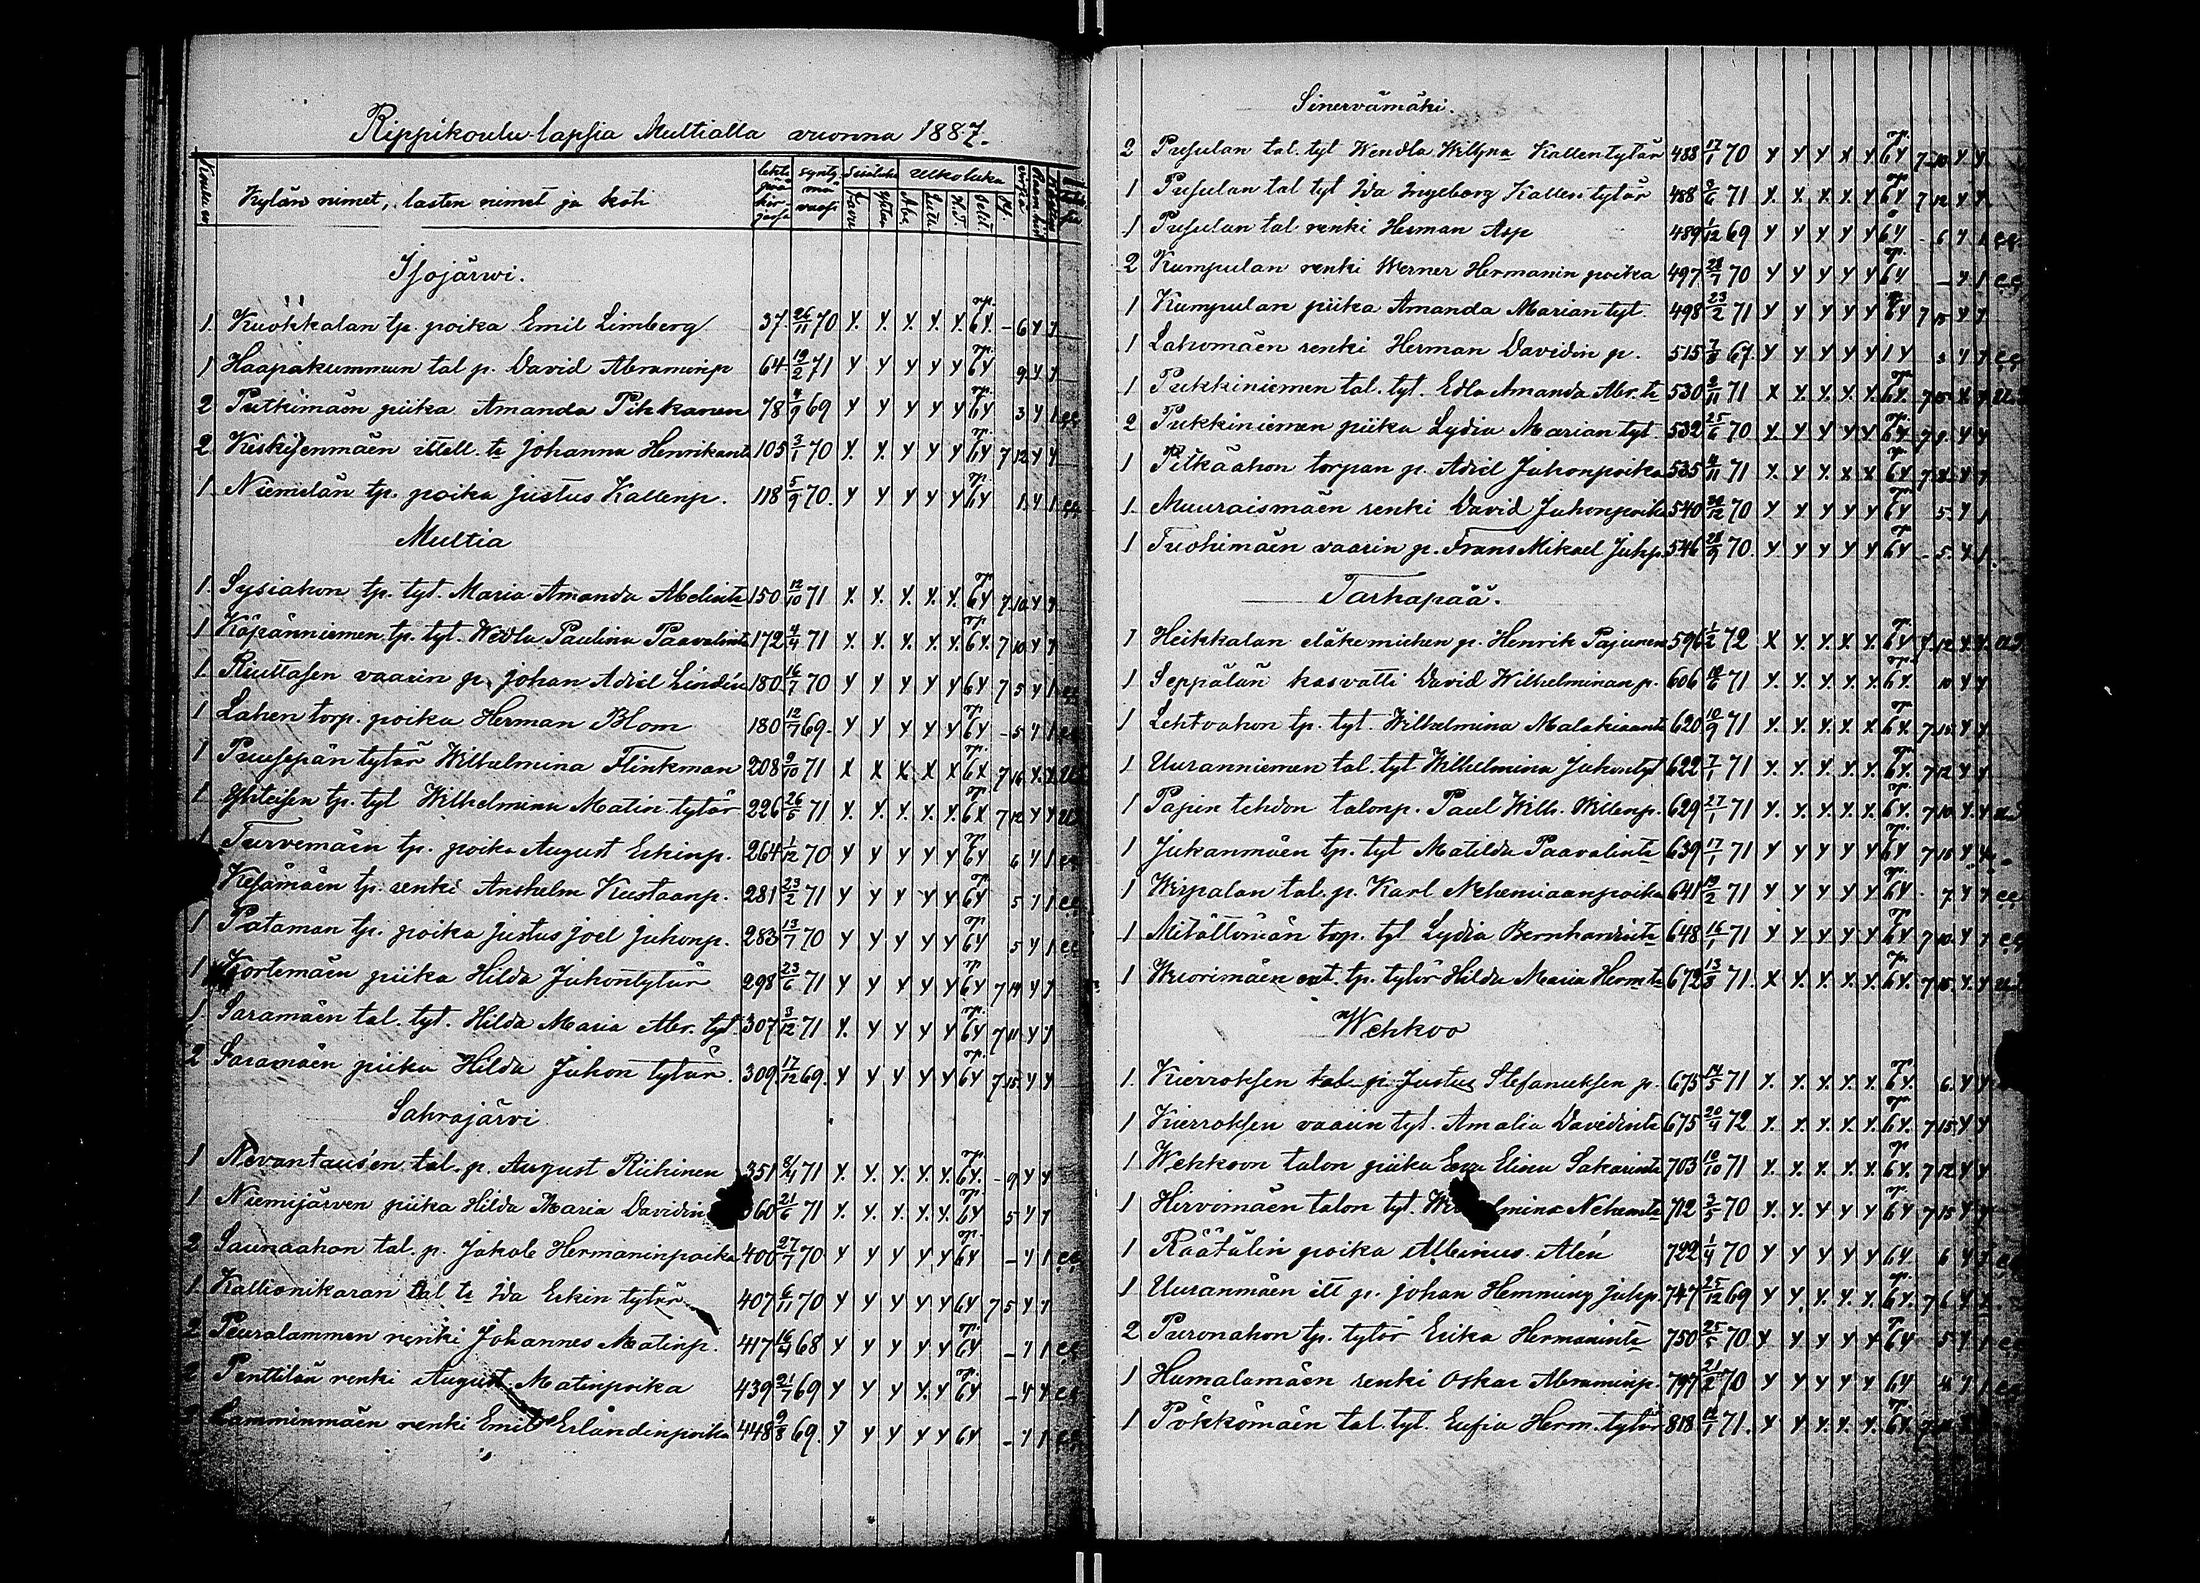 Rippikoulu-lapsia Multialla vuonna 1887.
Kylän nimet, lasten nimet ja koti
Isojärvi.
1. Kuokkalan tp. poika Emil Limberg 37 26/11 70 y. y. y. y. y. 6y. - 6 y y
1 Haapakummun tal p. David Abraminp 64 19/2 71 y y y y y 6y 9 y y
2 Putkimäen piika Amanda Pihkanen 78 4/9 69 y y y y y 6y 3 y 1
2 Keskisenmäen ittell. tr Johanna Henrikant 105 3/1 70 y. y. y y y 6y 7 12 y y
1 Niemelän tp. poika Justus Kallenp. 118 5/9 70. y y y y y 6y 1 y 1
Multia
1. Sysiahon tp. tyt. Maria Amanda Abelintr 150 12/10 71 y. y. y. y. y. 6y 7 10 y y
1 Käpänniemen tp. tyt. Wedla Paulina Paavalint 172 4/4 71 y. y. y. y. y. 6y. 7 10 y y
1. Riuttasen vaarin p. Johan Adiel Lindén 180 16/7 70 y y y y y 6y 7 5 y 1
1 Lahen torp. poika Herman Blom 180 12/7 69. y y y y y 6y - 5 y 1
1 Puusepän tytär Wilhelmina Flinkman 208 9/10 71 x x x x x 6x 7 16 x x
1. Yhteisen tp. tyt Wilhelmina Matin tytär 226 26/5 71 y. y. y. y. y. 6x 7 12 y y
1 Turvemäen tp. poika August Erkinp. 264 1/12 70 y y y y y 6y 6 y 1
Kesämäen tp. renki Anshelm Kustaanp. 281 23/2 71 y y y y y 6y 5 1 1
1 Pataman tp. poika Justus Joel Juhonp. 283 13/7 70 y y y y y 6y 5 y 1
1 Kortemäen piika Hilda Juhontytär 298 23/6 71 y y y y y 6y 7 14 y y
1 Saramäen tal. tyt. Hilda Maria Abr. tyt. 307 3/12 71 y. y y y y 6y 7 11 y y
2 Saramäen piika Hilda Juhon tytär. 309 17/12 69. y y y y y 6y 7 15 y y
Sahrajärvi
1 Nevantausen tal. p. August Riihinen 351 8/4 71 y. y. y. y. y. 6y. - 9 y y
1 Niemijärven piika Hilda Maria Davidin 360 21/6 71 y. y. y. y. y. 6y 5 y y
2 Saunaahon tal. p. Jakob Hermaninpoika 400 27/7 70 y y y y y 6y - y 1
1. Kallionikaran tal tr Ida Erkin tytär 407 6/11 70 y y y y y 6y 7 5 y y
2 Peuralammen renki Johannes Matinp. 417 16/4 68 y y y y y 6y - 1 1
2 Penttilän renki August Matinpoika 439 21/7 69 y y y y y 6y - y y
Lamminmäen renki Emil Erlandinpoika 448 9/8 69. y y y y y 6y - 1 1
Sinervämäki.
2 Pusulan tal. tyt Wendla Willna Kallentytär 488 17/1 70 y y y x y 6y 7 10 y y
1 Pusulan tal tyt Ida Ingeborg Kallen tytär 488 9/6 71 x. x. x. x. y 6y 7 12 y y
1 Pusulan tal renki Herman Asp 489 1/12 69 y y y y y 6y - 6 y 1
2 Kumpulan renki Werner Hermanin poika 497 28/7 70 y y y y y 6y - y 1
1 Kumpulan piika Amanda Marian tyt. 498 23/2 71 y y y y y 6y 7 15 y y
1 Lahomäen renki Herman Davidin p. 515 7/8 67. y y y y y 1 y 3 y y
1 Pukkiniemen tal. tyt. Edla Amanda Abr. tr 530 2/11 71 x x. y. y. y. 6y. 7 15 x y
2 Pukkiniemen piika Lydia Marian tyt. 532 25/6 70 y. y y y y 6y. 7 9. y y
1 Pitkäahon torpan p. Adiel Juhonpoika 535 4/11 71 x. y. y. x x. 6y 7 8. y y
1. Muuraismäen renki David Juhonpoika 540 /12 70 y y y y y 6y 5. y 1
1 Tuohimäen vaarin p. Frans Mikael Juhp. 546 28/9 70. y y y y y 6y - 5. y 1.
Tarhapää.
1 Heikkalan eläkemiehen p. Henrik Pajunen 596 1/2 72 x y. y. y. y. 6y y 12 y. y.
1 Seppälän kasvatti David Wilhelminan p. 606 18/6 71 y. y. y. y. y. 6y. 10 y y
1 Lehtoahon tp. tyt. Wilhelmina Malakiaant 620 10/9 71 y. y. y. y. x 6y. 7 15 y y
1 Uuranniemen tal. tyt Wilhelmina Juhontyt 622 7/1 71 y. y. y. y. y. 6y. 7 12 y y
1 Pajun tehdon talonp. Paul Wilh. Willenp. 629 27/1 71 y. y. y. y. y. 6y. 7 10. y. y
1 Jukanmäen tp. tyt Matilda Paavalintr 639 17/1 71 y y y y y 6y 7 16 y y
1 Wirpalan tal. p. Karl Nehemiaanpoika 641 19/2 71 y y y y y 6y. 7. y y
1 Mitättömän torp. tyt Lydia Bernhardintr 648 16/1 71 y y y y y 6y 7 10 y y
1 Wuorimäen ent. tp. tytär Hilda Maria Herm tr 672 13/8 71. x y. y. y. y. 6y. 7 15. y. y
Wehkoo
1. Kierroksen tal. p. Justus Stefanuksen p. 675 14/5 71 y. y. y. y. y. 6y. 6. y y
1 Kierroksen vaarin tyt. Amalia Davidintr 675 20/4 72 y. y. y. y. y. 6y. 7 15 y y
1 Wehkoon talon piika Eva Elina Sakarintr 703 10/10 71 y. y. y. y. y. 6y. 7 12 y y
1 Hirvimäen talon tyt. Wi lmina Nehemtr 712 2/5 70 y. y. y y y 6y 7 15 y y
1 Räätälin poika Albinus Alén 722 1/4 70 y y y y y 6y. 6 y y
1 Uuranmäen itt p. Johan Hemming Juhp. 747 25/12 69 y y. y. y. y. 6y. 7 6. y.
2 Puronahon tp. tytär Erika Hermanintr 750 25/5 70 y y y y y 6y 5 y 1
1 Humalamäen renki Oskar Abraminp. 797 21/2 70 y y y y y 6y 4 y 1
1 Pökkömäen tal. tyt. Eufia Herm. tytär 818 /1 71. y y y. y. y. 6y.